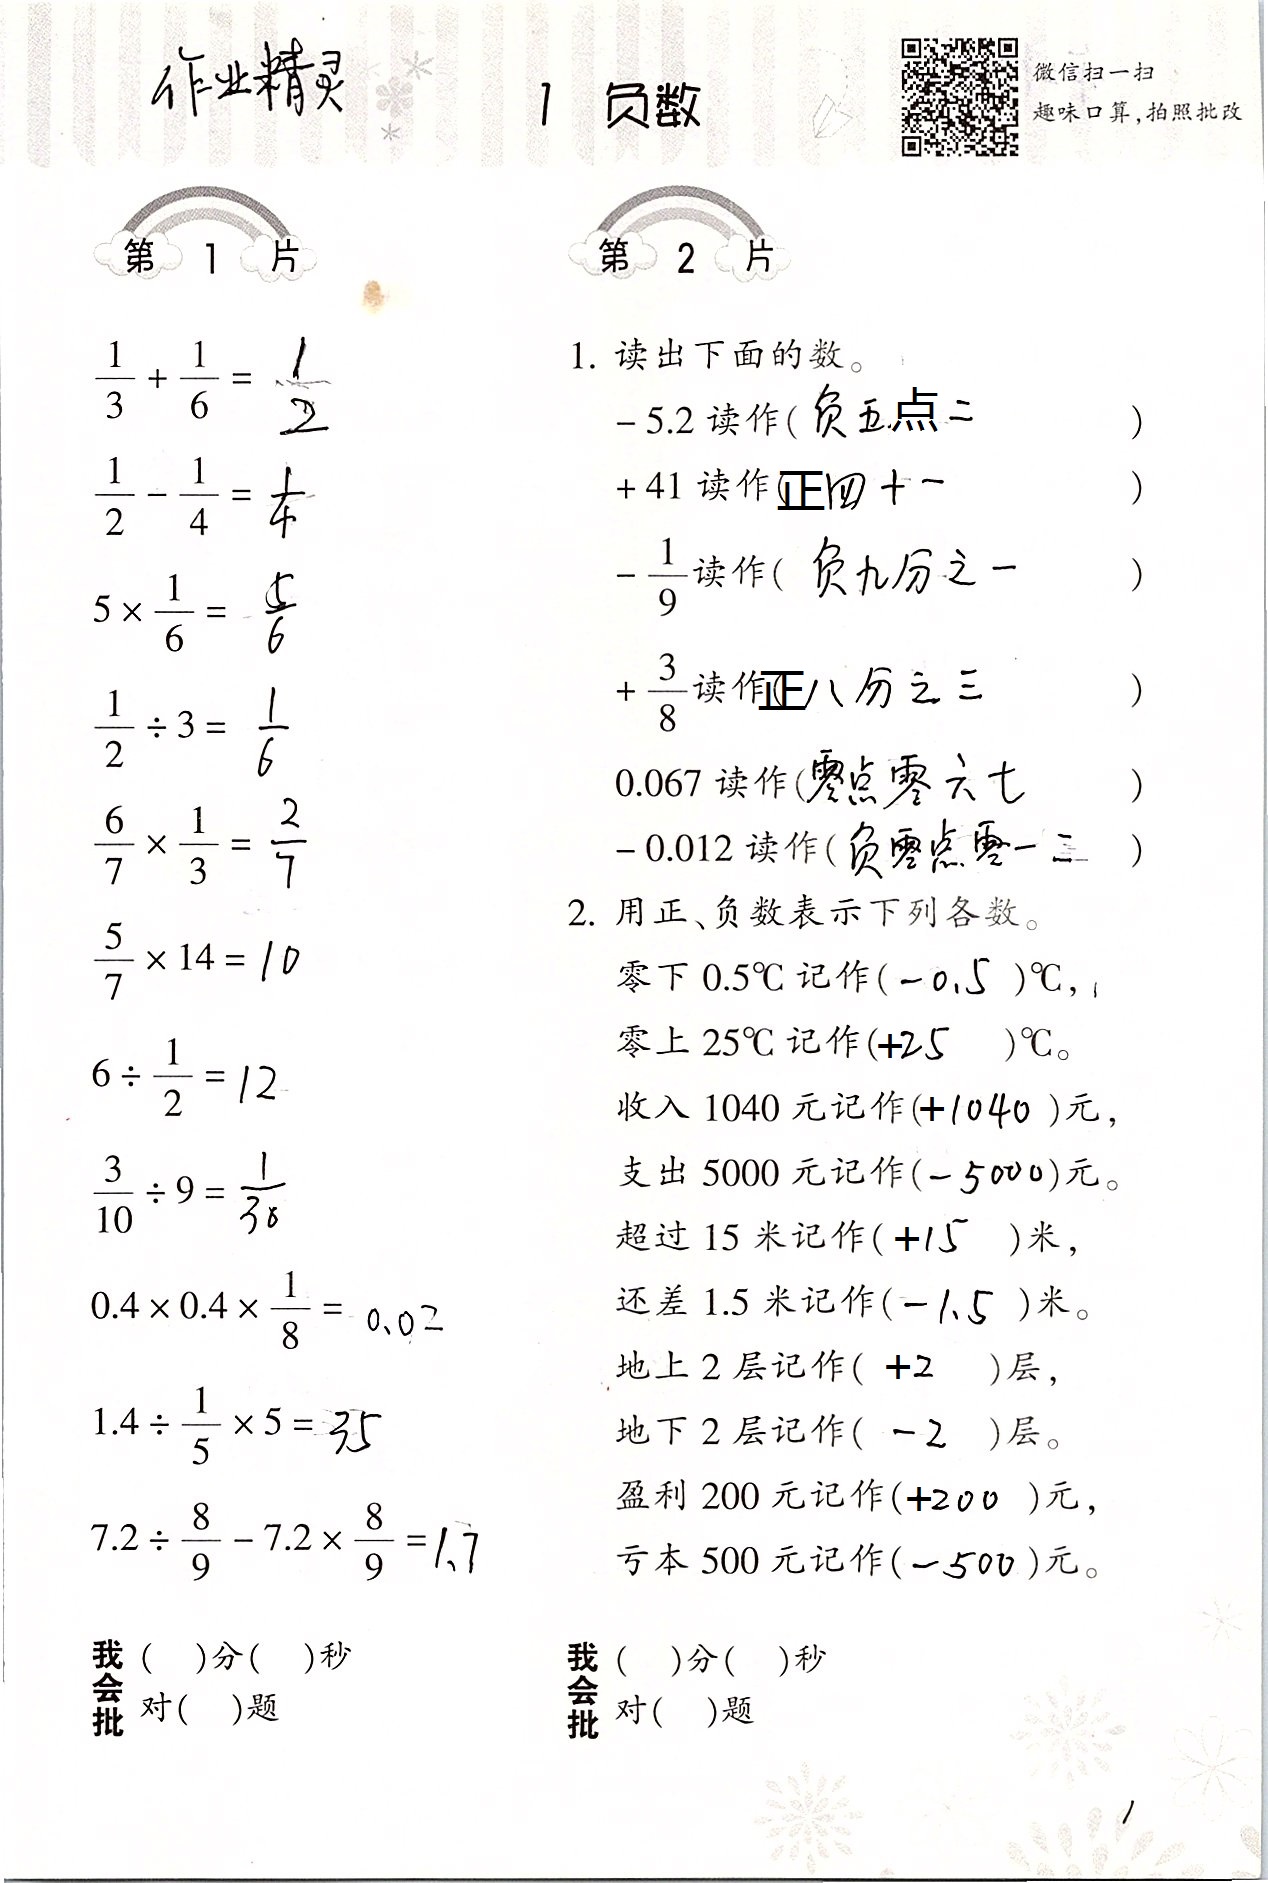 作业精灵
1 负数
微信扫一扫
趣味口算,拍照批改
第 1 片
1/3 + 1/6 = 1/2
1/2 - 1/4 = 1/4
5 × 1/6 = 5/6
1/2 ÷ 3 = 1/6
6/7 × 1/3 = 2/7
5/7 × 14 = 10
6 ÷ 1/2 = 12
3/10 ÷ 9 = 1/30
0.4 × 0.4 × 1/8 = 0.02
1.4 ÷ 1/5 × 5 = 35
7.2 ÷ 8/9 - 7.2 × 8/9 = 1.7
我会批 ( )分( )秒
对( )题
第 2 片
1. 读出下面的数。
-5.2 读作(负五点二)
+41 读作(正四十一)
-1/9 读作(负九分之一)
+3/8 读作(正八分之三)
0.067 读作(零点零六七)
-0.012 读作(负零点零一二)
2. 用正、负数表示下列各数。
零下 0.5℃ 记作(-0.5)℃,
零上 25℃ 记作(+25)℃。
收入 1040 元记作(+1040)元,
支出 5000 元记作(-5000)元。
超过 15 米记作(+15)米,
还差 1.5 米记作(-1.5)米。
地上 2 层记作(+2)层,
地下 2 层记作(-2)层。
盈利 200 元记作(+200)元,
亏本 500 元记作(-500)元。
我会批 ( )分( )秒
对( )题
1